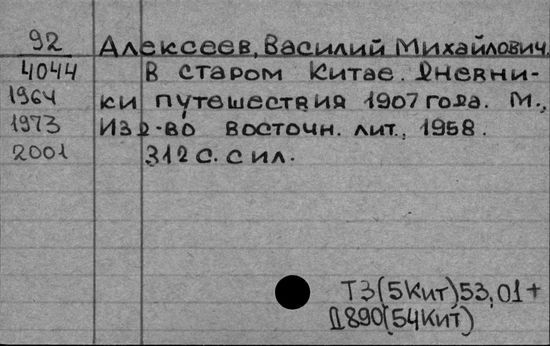 92 Алексеев, Василий Михайлович.
4044 В старом Китае. Дневни-
1964 ки путешествия 1907 года. М.,
1973 Изд-во восточн. лит., 1958.
2001 312 с. с ил.
Т3(5Кит)53,01+
Д890(54Кит)